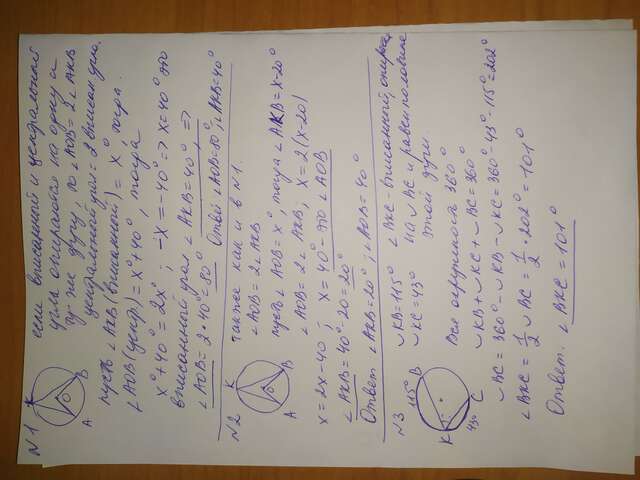 N1
если вписанный и центральный
угла опираются на одну и
ту же дугу, то ∠AOB = 2∠AKB
центральный угол = 2 вписан угла.
K
O
A
B
пусть ∠AKB (вписанный) = x°, тогда
∠AOB (центр) = x°+40°, тогда
x°+40° = 2x° ; -x = -40° => x = 40° это
вписанный угол ∠AKB = 40° =>
∠AOB = 2 • 40° = 80° Ответ ∠AOB = 80°; ∠AKB = 40°
N2 также как и в N1.
∠AOB = 2∠AKB
K
O
A
B
пусть ∠AOB = x°, тогда ∠AKB = x-20°
∠AOB = 2∠AKB; x = 2(x-20)
x = 2x-40 ; x = 40° - это ∠AOB
∠AKB = 40°-20 = 20°
Ответ ∠AKB = 20° ; ∠AOB = 40°
N3 ◡KB = 115° ∠BKC - вписанный,
◡KC = 43° на ◡BC и равен половине
этой дуги.
115° B
K
43° C
Вся окружность 360°
◡KB + ◡KC + ◡BC = 360°
◡BC = 360° - ◡KB - ◡KC = 360° - 43° - 115° = 202°
∠BKC = 1/2 ◡BC = 1/2 • 202° = 101°
Ответ. ∠BKC = 101°